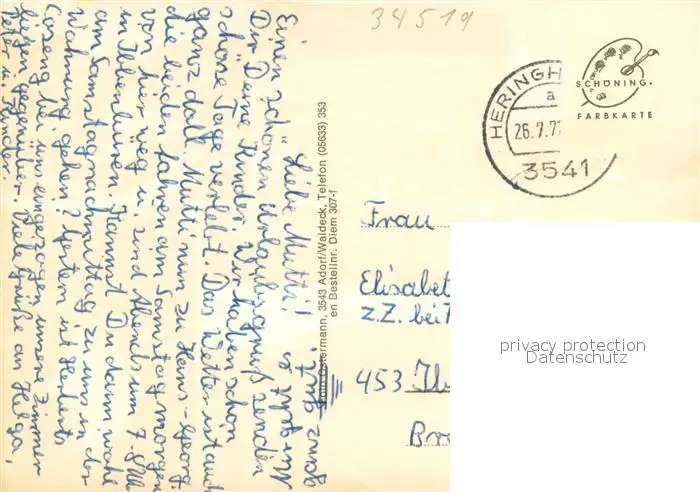 34519
SCHÖNING.
FARBKARTE
HERINGH
a
26.7.7
3541
Liebe Mutti!
Einen schönen Urlaubsgruß senden
Dir Deine Kinder. Wir haben schon
schöne Tage verlebt. Das Wetter ist auch
ganz doll. Mutti nun zu Hans-Georg,
die beiden fahren am Samstagmorgen
von hier weg u. sind Abends um 7-8 Uhr
in Ibbenbüren. Kannst Du dann wohl
am Samstagnachmittag zu uns in der
Wohnung gehen? Gestern ist Herberts
Coseng bei uns eingezogen, unsere Zimmer
liegen gegenüber. Viele Grüße an Helga,
Peter u. Kinder.
ganz gut
Ostermann, 3543 Adorf/Waldeck, Telefon (05633) 353
en Bestellnr. Diem 307-f
Frau
Elisabet
z.Z. bei
453 Ib
Br
privacy protection
Datenschutz